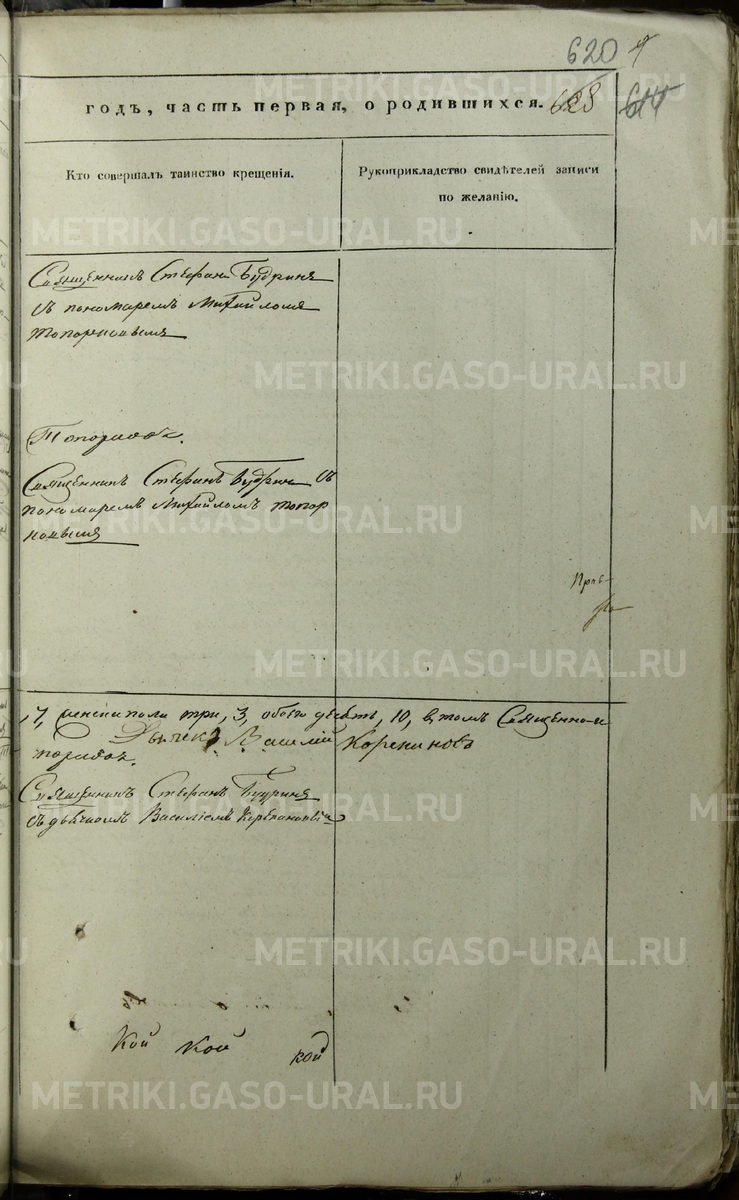 620
годъ, часть первая, о родившихся. 623 614
Кто совершалъ таинство крещенія.
Рукоприкладство свидѣтелей записи
по желанію.
Священникъ Стефанъ Будринъ
съ пономаремъ Михайломъ
Топорковымъ
Священникъ Стефанъ Будринъ съ
пономаремъ Михайломъ Топор
ковымъ
7, женска пола три, 3, обоего десять, 10, въ томъ Священно-и
Дьячекъ Василій Корекиновъ
Священникъ Стефанъ Будринъ
съ дьячкомъ Василіемъ
Кой Кой кой
METRIKI.GASO-URAL.RU